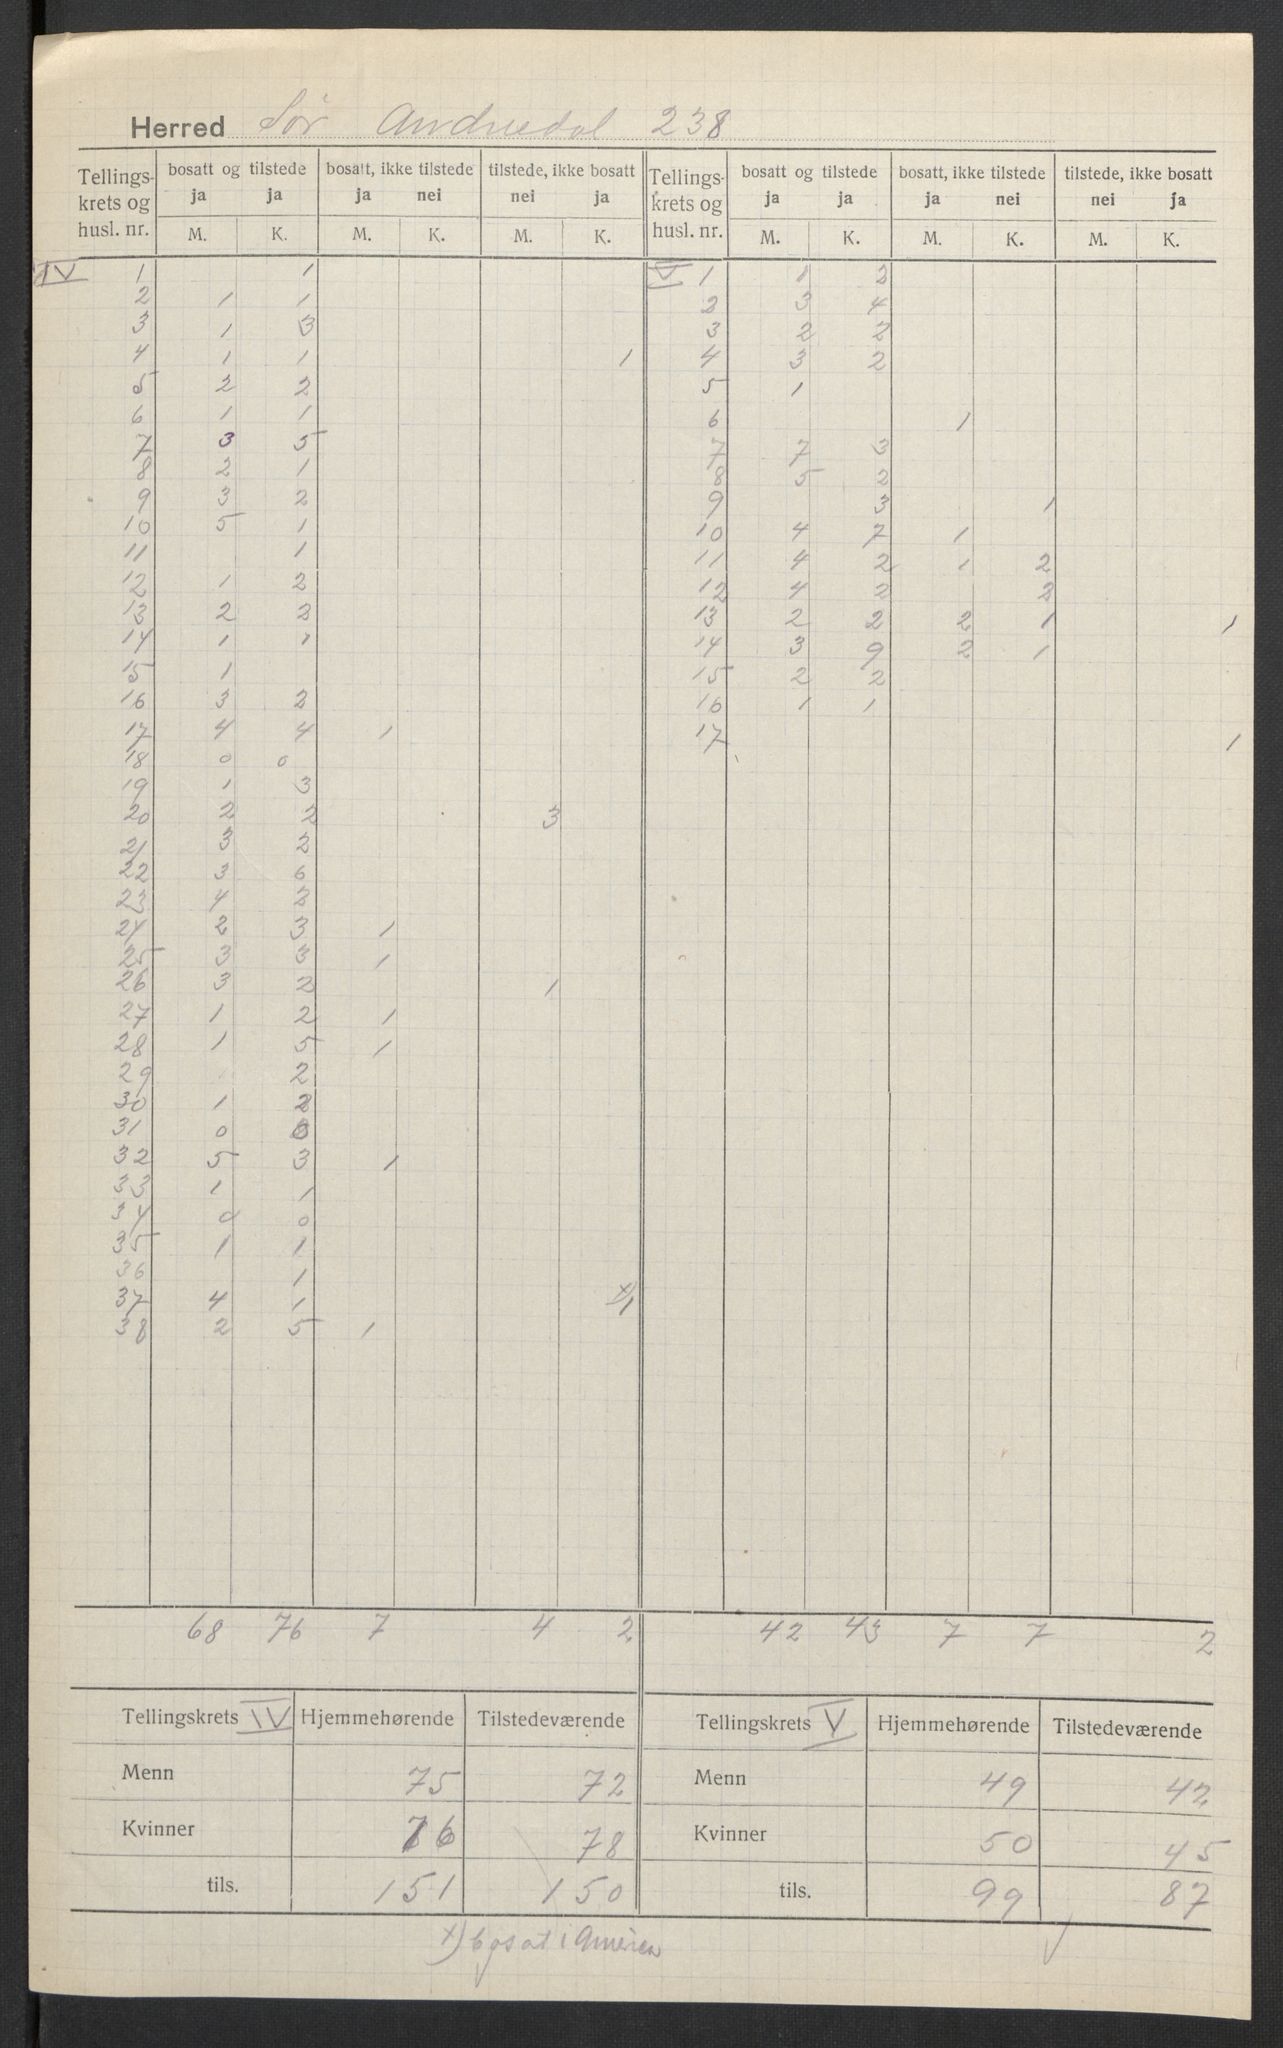 Herred Sør Aurdal 238
Tellings- krets og husl. nr. | bosatt og tilstede ja ja | bosatt, ikke tilstede ja nei | tilstede, ikke bosatt nei ja | Tellings- krets og husl. nr. | bosatt og tilstede ja ja | bosatt, ikke tilstede ja nei | tilstede, ikke bosatt nei ja
M. K. M. K. M. K. M. K. M. K. M. K.
IV 1 1 V 1 1 2
2 1 1 2 3 4
3 1 3 3 2 2
4 1 1 1 4 3 2
5 2 2 5 1
6 1 1 6 1
7 3 5 7 7 3
8 2 1 8 5 2
9 3 2 9 3 1
10 5 1 10 4 7 1
11 1 11 4 2 1 2
12 1 2 12 4 2 2
13 2 2 13 2 2 2 1 1
14 1 1 14 3 9 2 1
15 1 15 2 2
16 3 2 16 1 1
17 4 4 1 17 1
18 0 0
19 1 3
20 2 2 3
21 3 2
22 3 6
23 4 2
24 2 3 1
25 3 3 1
26 3 2 1
27 1 2 1
28 1 5 1
29 2
30 1 2
31 0 0
32 5 3 1
33 1 1
34 0 0
35 1 1
36 1
37 4 1 x) 1
38 2 5 1
68 76 7 4 2 42 43 7 7 2
Tellingskrets IV Hjemmehørende Tilstedeværende Tellingskrets V Hjemmehørende Tilstedeværende
Menn 75 72 Menn 49 42
Kvinner 76 78 Kvinner 50 45
tils. 151 150 tils. 99 87
x) bosat i Amerika